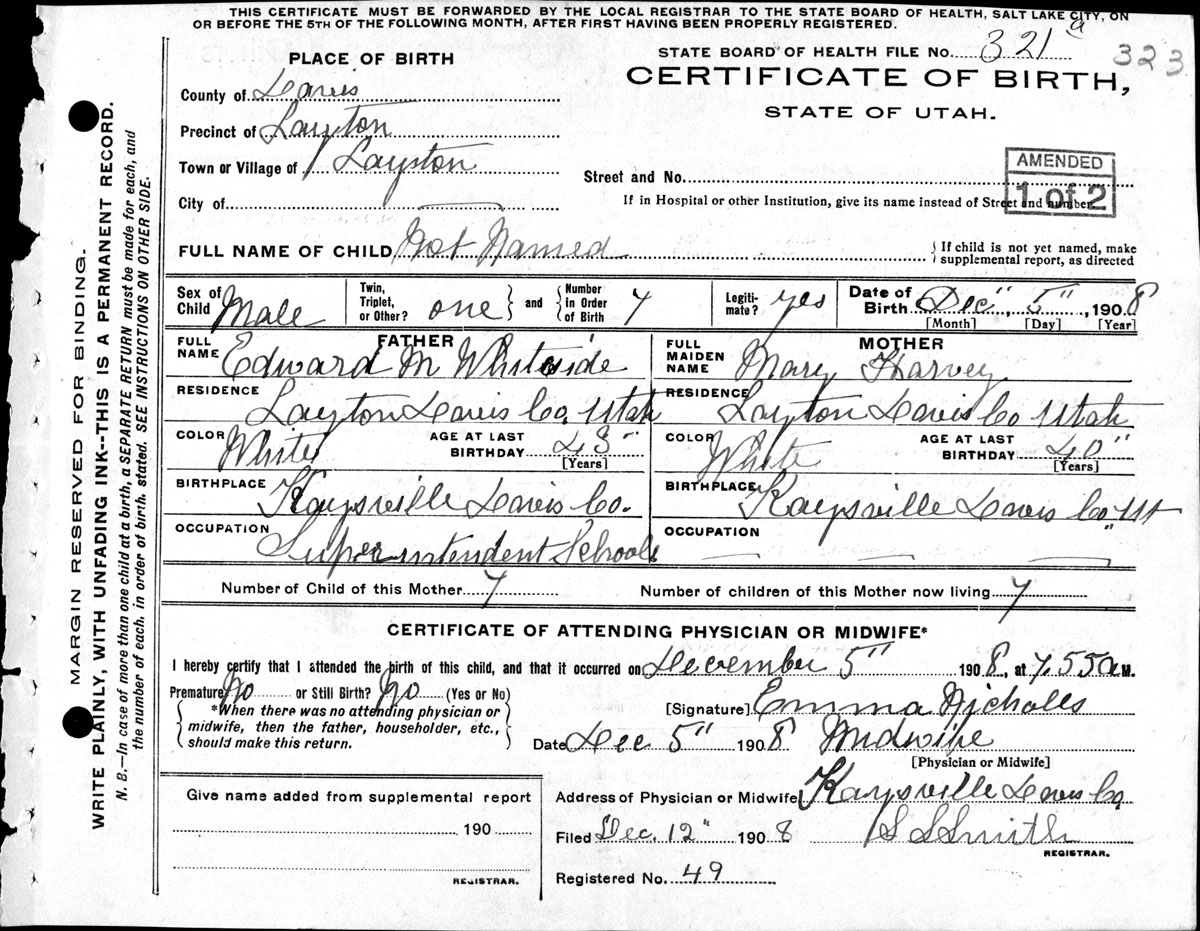 THIS CERTIFICATE MUST BE FORWARDED BY THE LOCAL REGISTRAR TO THE STATE BOARD OF HEALTH, SALT LAKE CITY, ON
OR BEFORE THE 5TH OF THE FOLLOWING MONTH, AFTER FIRST HAVING BEEN PROPERLY REGISTERED.
MARGIN RESERVED FOR BINDING.
WRITE PLAINLY, WITH UNFADING INK--THIS IS A PERMANENT RECORD.
N. B.—In case of more than one child at a birth, a SEPARATE RETURN must be made for each, and
the number of each, in order of birth, stated. SEE INSTRUCTIONS ON OTHER SIDE.
PLACE OF BIRTH
County of Davis
Precinct of Layton
Town or Village of Layton
City of
STATE BOARD OF HEALTH FILE No. 321 a 323
CERTIFICATE OF BIRTH,
STATE OF UTAH.
AMENDED
1 of 2
Street and No.
If in Hospital or other Institution, give its name instead of Street and number.
FULL NAME OF CHILD Not Named
If child is not yet named, make
supplemental report, as directed
Sex of Child Male
Twin, Triplet, or Other? one and Number in Order of Birth 7
Legitimate? yes
Date of Birth Dec" 5", 1908
[Month] [Day] [Year]
FATHER
FULL NAME Edward M Whiteside
RESIDENCE Layton Davis Co, Utah
COLOR White AGE AT LAST BIRTHDAY 43"
[Years]
BIRTHPLACE Kaysville Davis Co.
OCCUPATION Superintendent Schools
MOTHER
FULL MAIDEN NAME Mary Harvey
RESIDENCE Layton Davis Co Utah
COLOR White AGE AT LAST BIRTHDAY 40"
[Years]
BIRTHPLACE Kaysville Davis Co, Ut
OCCUPATION
Number of Child of this Mother 7 Number of children of this Mother now living 7
CERTIFICATE OF ATTENDING PHYSICIAN OR MIDWIFE*
I hereby certify that I attended the birth of this child, and that it occurred on December 5" 1908, at 7.55 a M.
Premature No or Still Birth? No (Yes or No)
*When there was no attending physician or
midwife, then the father, householder, etc.,
should make this return.
[Signature] Emma Nicholls
Date Dec 5" 1908 Midwife
[Physician or Midwife]
Give name added from supplemental report
190
REGISTRAR.
Address of Physician or Midwife Kaysville Davis Co
Filed Dec. 12" 1908 S S Smith
REGISTRAR.
Registered No. 49